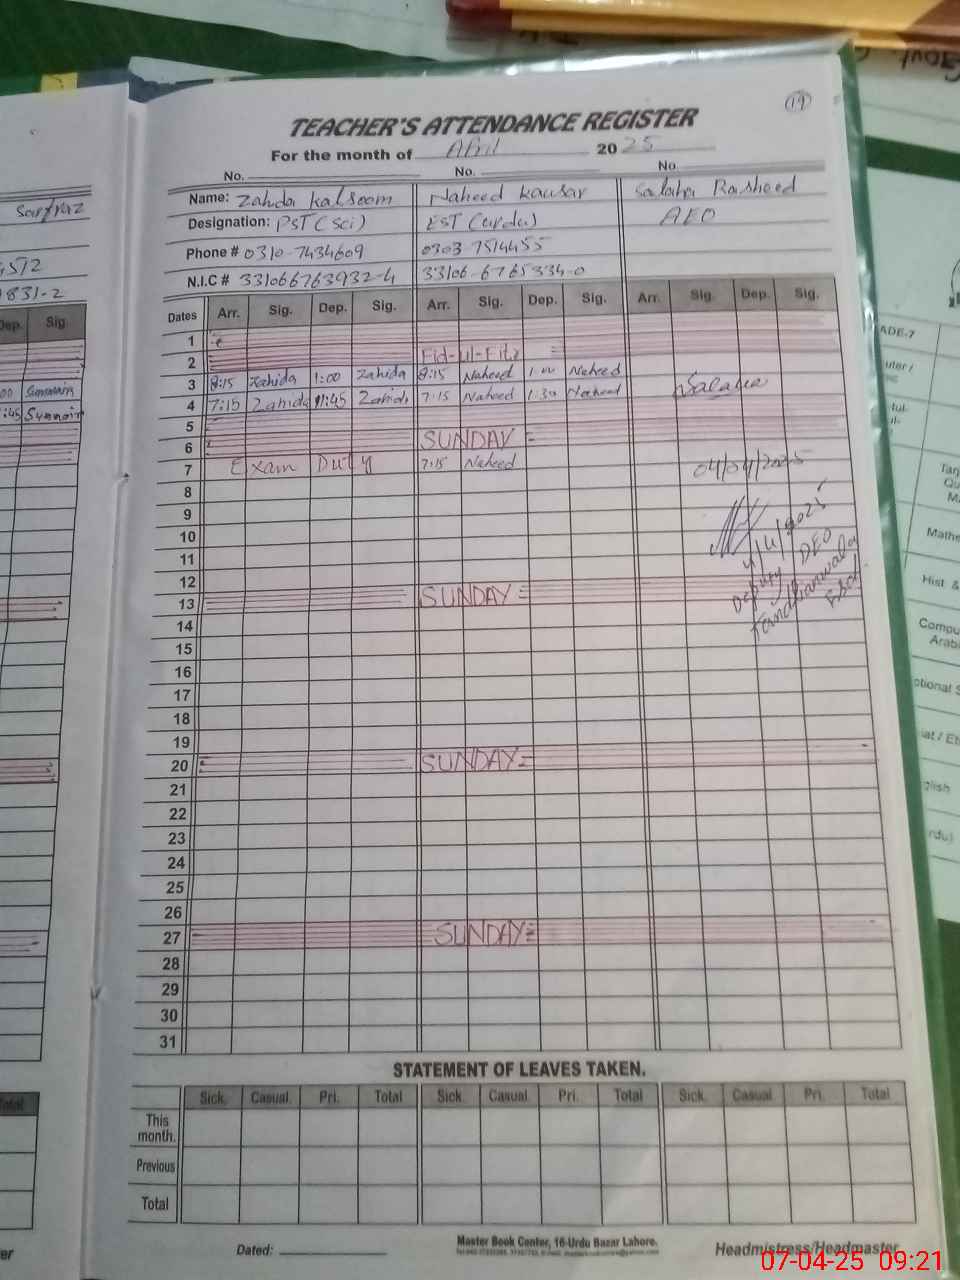 19
TEACHER'S ATTENDANCE REGISTER
For the month of April 2025
No. No. No.
Name: Zahida Kalsoom Naheed Kausar Salaha Rasheed
Designation: PST (Sci) EST (Urdu) AEO
Phone # 0310-7434609 0303 7514455
N.I.C # 331066763932-4 33106-6765334-0
Dates Arr. Sig. Dep. Sig. Arr. Sig. Dep. Sig. Arr. Sig. Dep. Sig.
1
2 Eid-ul-Fitr
3 8:15 Zahida 1:00 Zahida 8:15 Naheed 1:00 Naheed
4 7:15 Zahida 11:45 Zahida 7:15 Naheed 1:30 Naheed Salaha
5
6 SUNDAY
7 Exam Duty 7:15 Naheed 04/04/2025
8
9
10
11
12
13 SUNDAY
14
15
16
17
18
19
20 SUNDAY
21
22
23
24
25
26
27 SUNDAY
28
29
30
31
4/4/2025
Deputy DEO
Tandlianwala
STATEMENT OF LEAVES TAKEN.
Sick. Casual. Pri. Total Sick. Casual. Pri. Total Sick. Casual Pri. Total
This month.
Previous
Total
Dated:
Master Book Center, 16-Urdu Bazar Lahore.
Headmistress/Headmaster
Sarfraz
831-2
Dep. Sig.
:45
ADE-7
Mathe
Hist &
Compu
Arabi
07-04-25 09:21